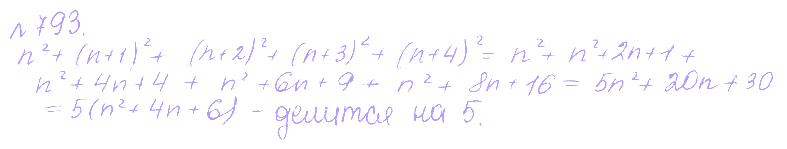 № 793.
n² + (n+1)² + (n+2)² + (n+3)² + (n+4)² = n² + n² + 2n + 1 +
n² + 4n + 4 + n² + 6n + 9 + n² + 8n + 16 = 5n² + 20n + 30
= 5(n² + 4n + 6) - делится на 5.